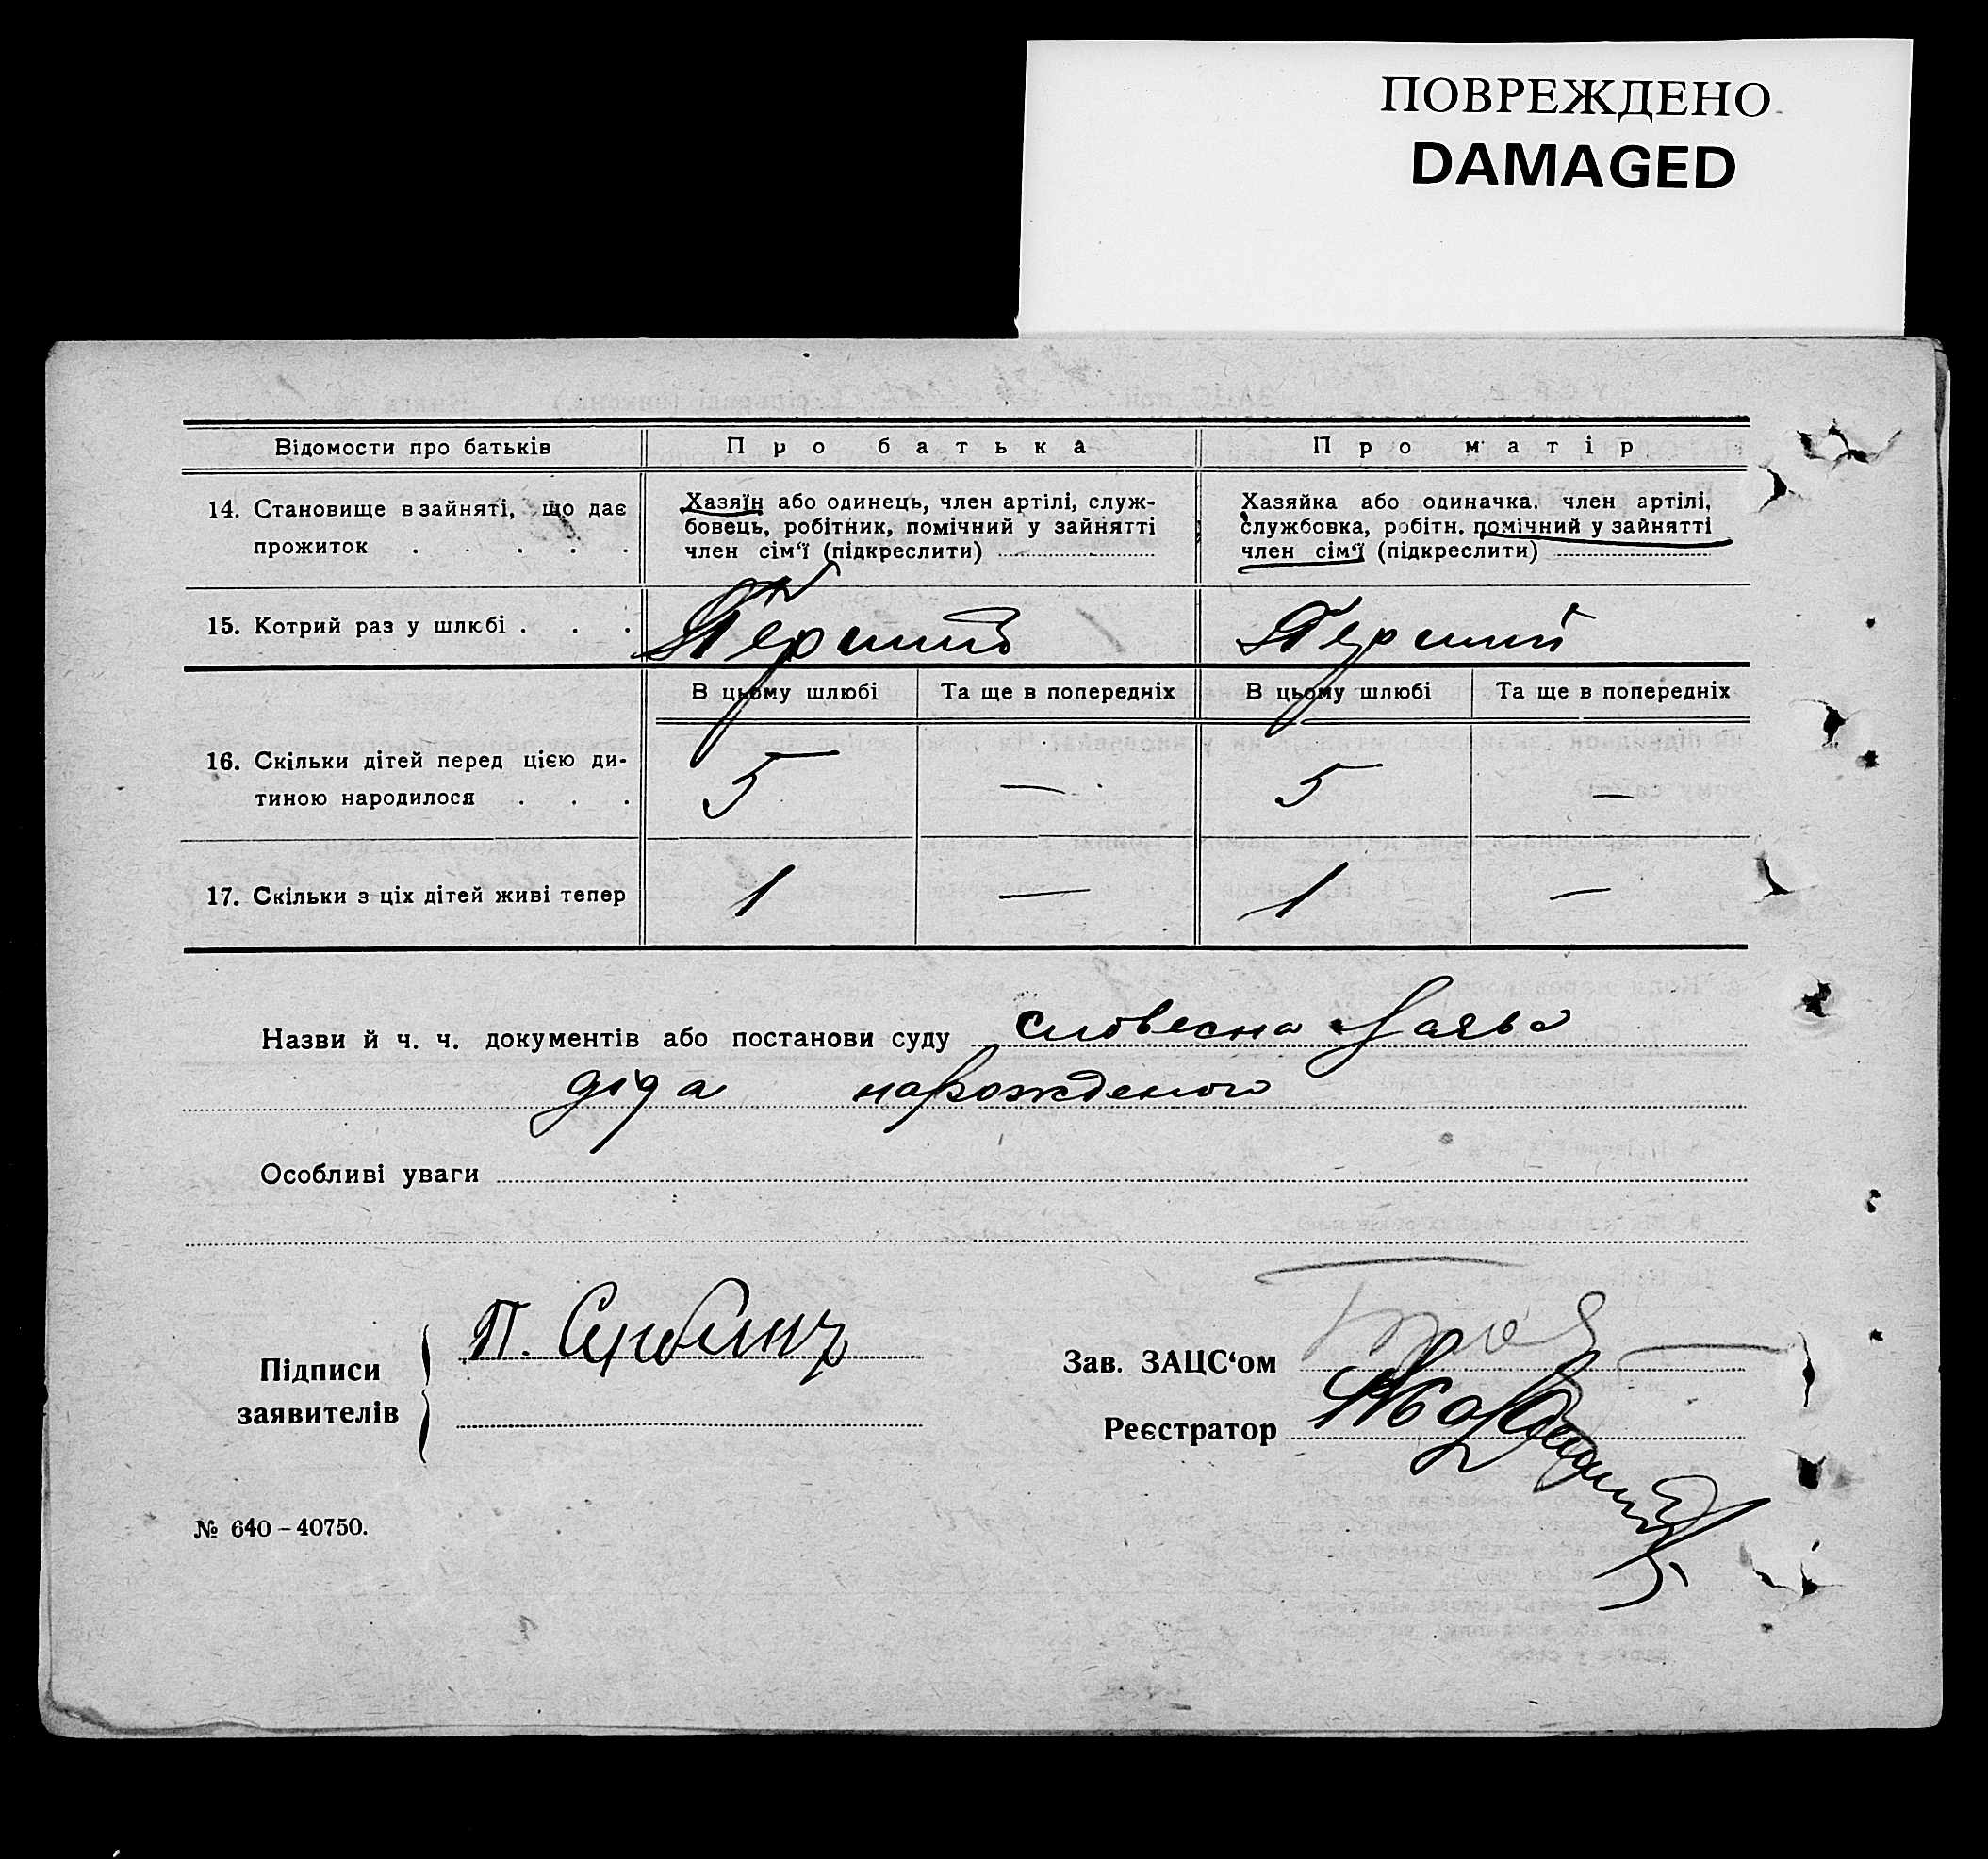 ПОВРЕЖДЕНО
DAMAGED
Відомости про батьків
Про батька
Про матір
14. Становище в зайняті, що дає
прожиток . . . .
Хазяїн або одинець, член артілі, служ-
бовець, робітник, помічний у зайнятті
член сім‘ї (підкреслити)
Хазяйка або одиначка, член артілі,
службовка, робітн. помічний у зайнятті
член сім‘ї (підкреслити)
15. Котрий раз у шлюбі . . .
Перший
Перший
В цьому шлюбі
Та ще в попередніх
В цьому шлюбі
Та ще в попередніх
16. Скільки дітей перед цією ди-
тиною народилося . . .
5
—
5
—
17. Скільки з ціх дітей живі тепер
1
—
1
—
Назви й ч. ч. документів або постанови суду словесна Заява
діда нарожденого
Особливі уваги
Підписи
заявителів
П.
Зав. ЗАЦС‘ом
Реєстратор
№ 640–40750.